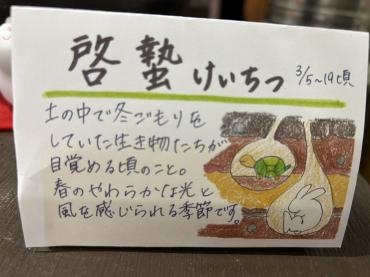 啓蟄 けいちつ 3/5～19頃
土の中で冬ごもりを
していた生き物たちが
目覚める頃のこと。
春のやわらかな光と
風を感じられる季節です。